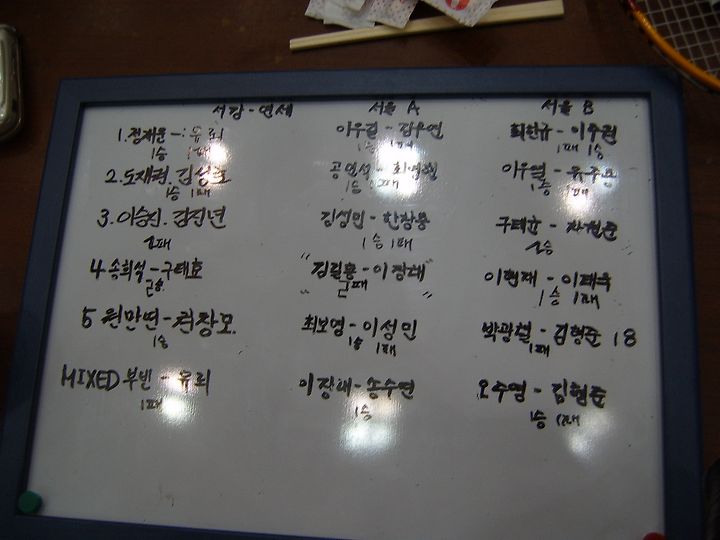 서강-연세 서울 A 서울 B
1. 정재윤-유희 이우길-김우연 최한규-이주원
1승 1패 1승 1패 1패 1승
2. 도재정. 김성호 공연석-최영환 이우열-유주용
1승 1패 1승 1패 1승 1패
3. 이승진. 김진년 김성민-한창용 구태균-차철준
2패 1승 1패 2승
4 송희설-구태호 "김길훈-이장래" 이현재-이재욱
2승 2패 1승 1패
5 원만연-천창모 최보영-이성민 박광철-김형준 18
1승 1승 1패 1패
MIXED 부빈-유희 이장래-송수연 오수영-김형준
1패 1승 1승 1패